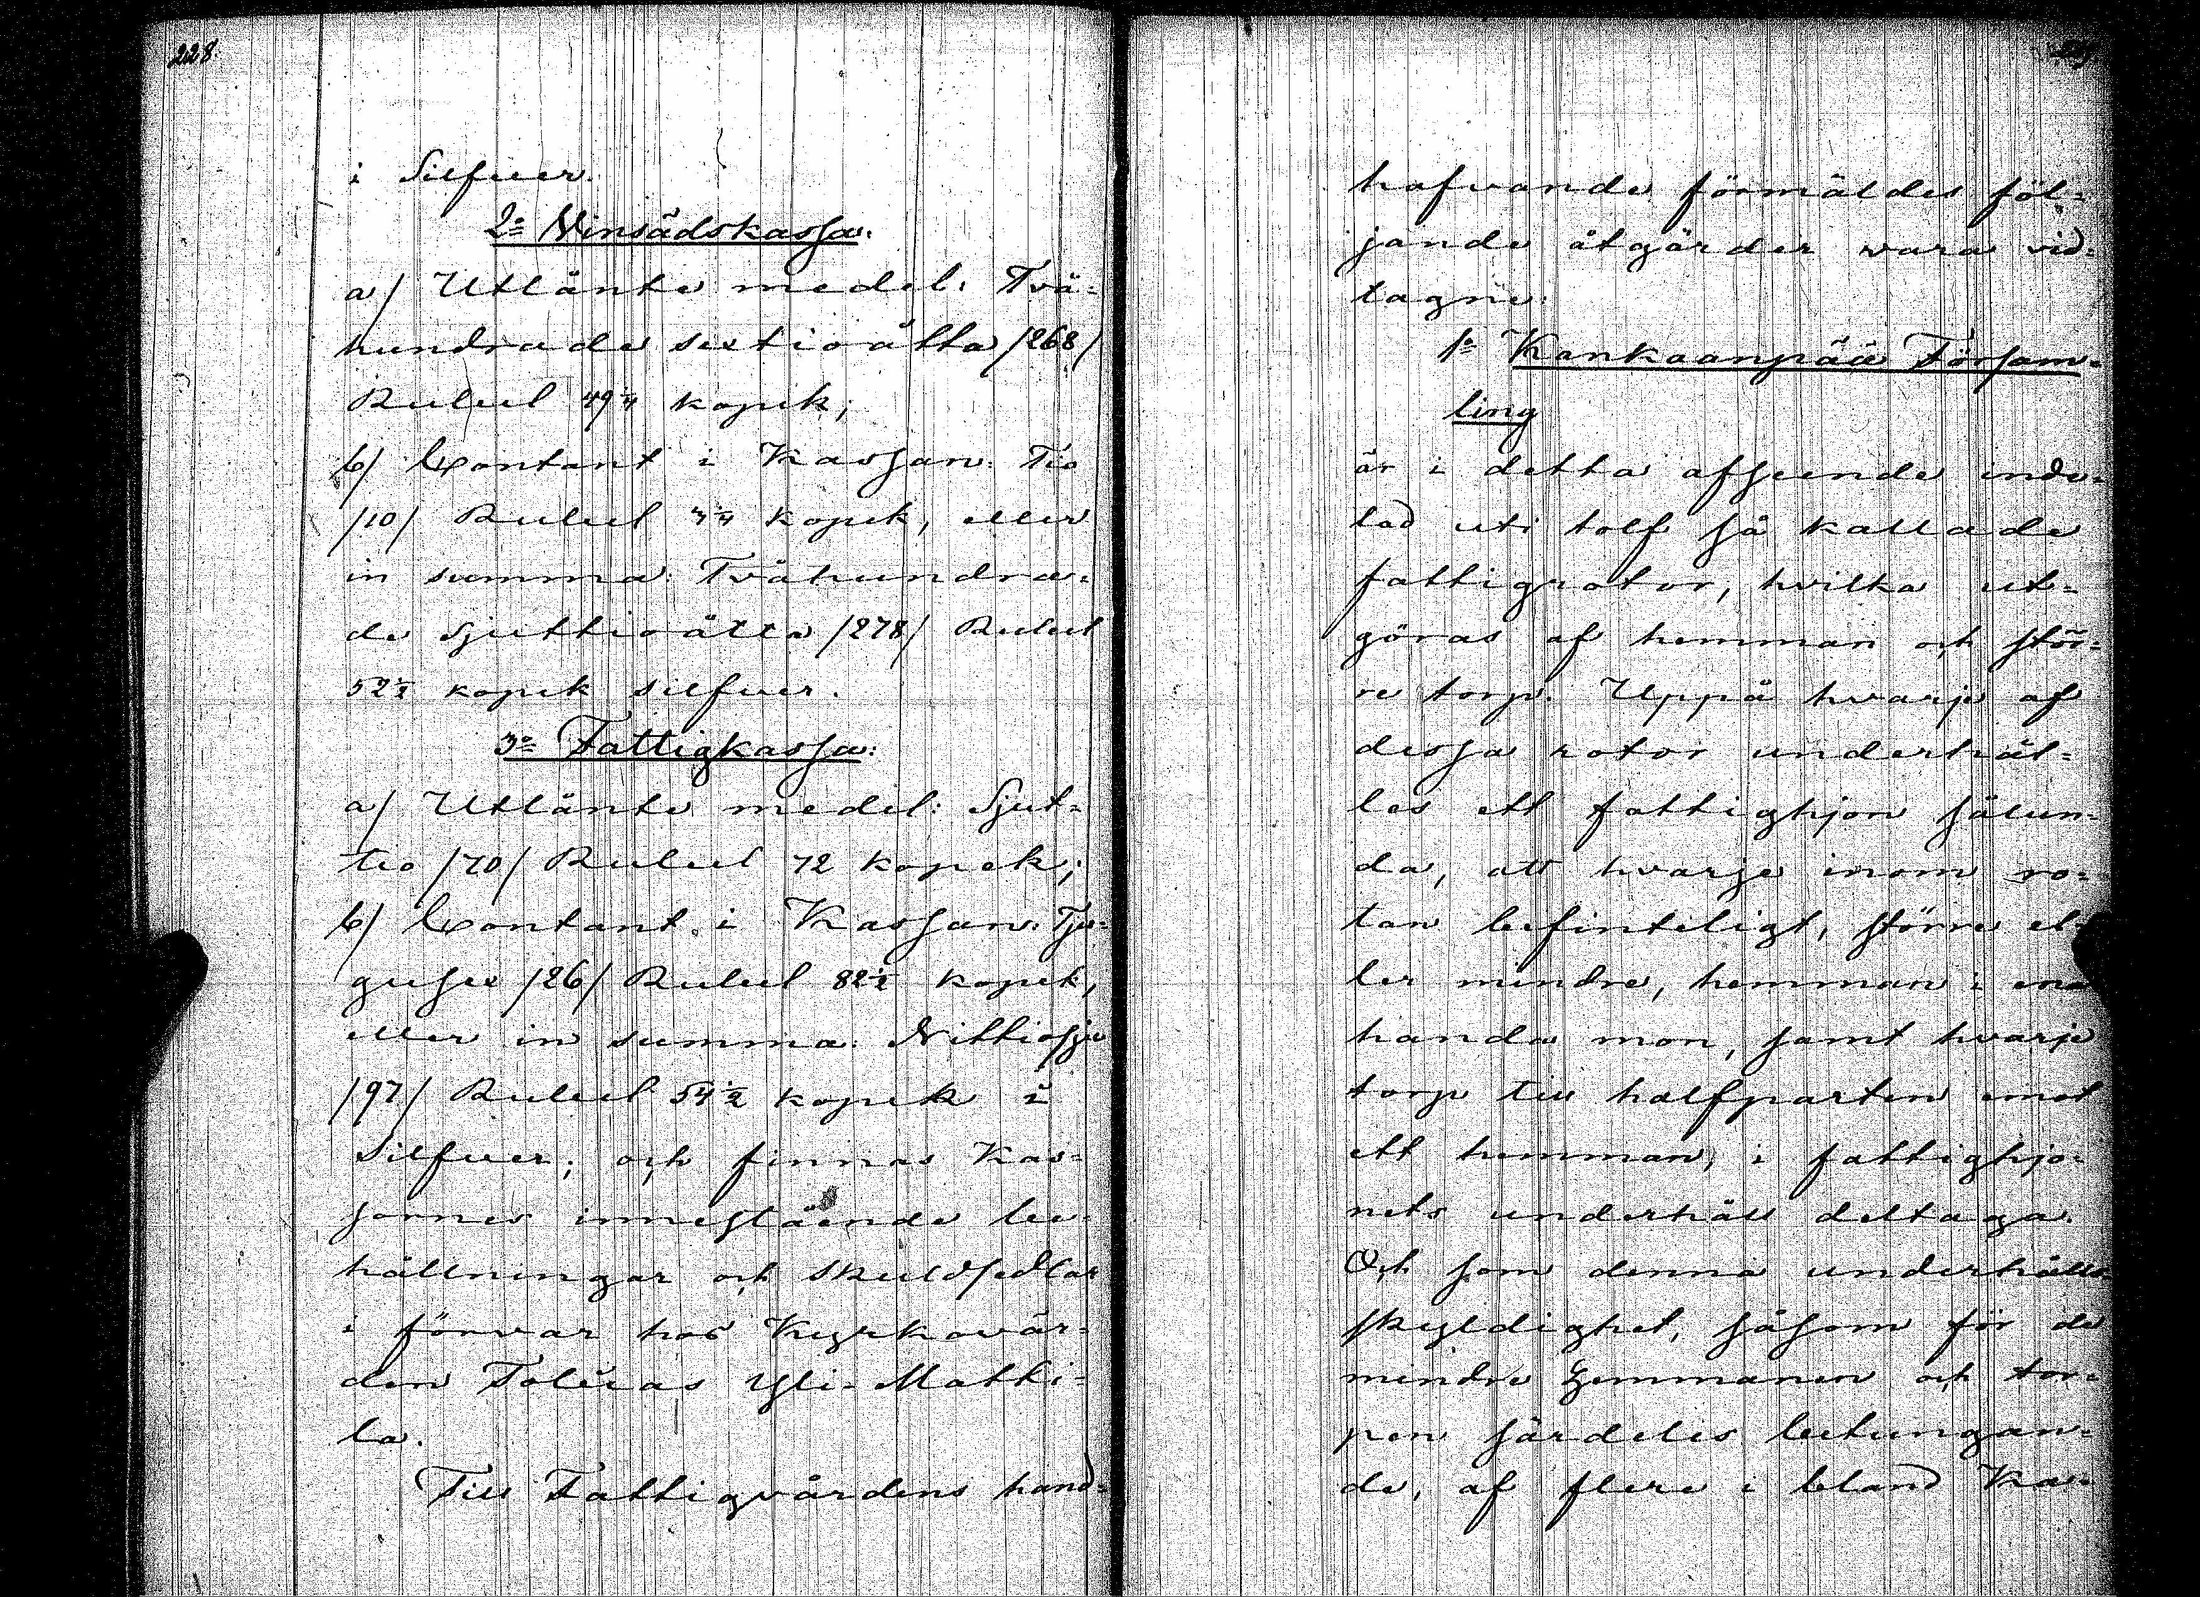 228.
i Silfver.
2o Vinsädskassa:
a/ Utlånte medel: Två-
hundrade sextioåtta /268/
Rubel 49 1/4 kopek;
b/ Contant i Kassan: Tio
/10/ Rubel 3 1/4 kopek, eller
in summa: Tvåhundra-
de sjuttioåtta /278/ Rubel
52 1/2 kopek silfver.
3o Fattigkassa:
a/ Utlånte medel: Sjut-
tio /70/ Rubel 72 kopek;
b/ Contant i Kassan: Tju-
gusex /26/ Rubel 82 1/2 kopek,
eller in summa: Nittiosju
/97/ Rubel 54 1/2 kopek i
Silfver; och finnas Kas-
sornes innestående be-
hållningar och skuldsedlar
i förvar hos Kyrkovär-
den Tobias Yli-Matti-
la.
Till Fattigvårdens hand-
hafvande förmäldes föl-
jande åtgärder vara vid-
tagne:
1o Kankaanpää Försam-
ling
är i detta afseende inde-
lad uti tolf så kallade
fattigrotor, hvilka ut-
göras af hemman och stör-
re torp. Uppå hvarje af
dessa rotor underhål-
les ett fattighjon sålun-
da, att hvarje inom ro-
tan befinteligt, större el-
ler mindre, hemman i ena
handa mon, samt hvarje
torp till halfparten emot
ett hemman, i fattighjo-
nets underhåll deltaga.
Och som denna underhålls
skyldighet, såsom för de
mindre hemmanen och tor-
pen särdeles betungan-
de, af flere i bland Ka-